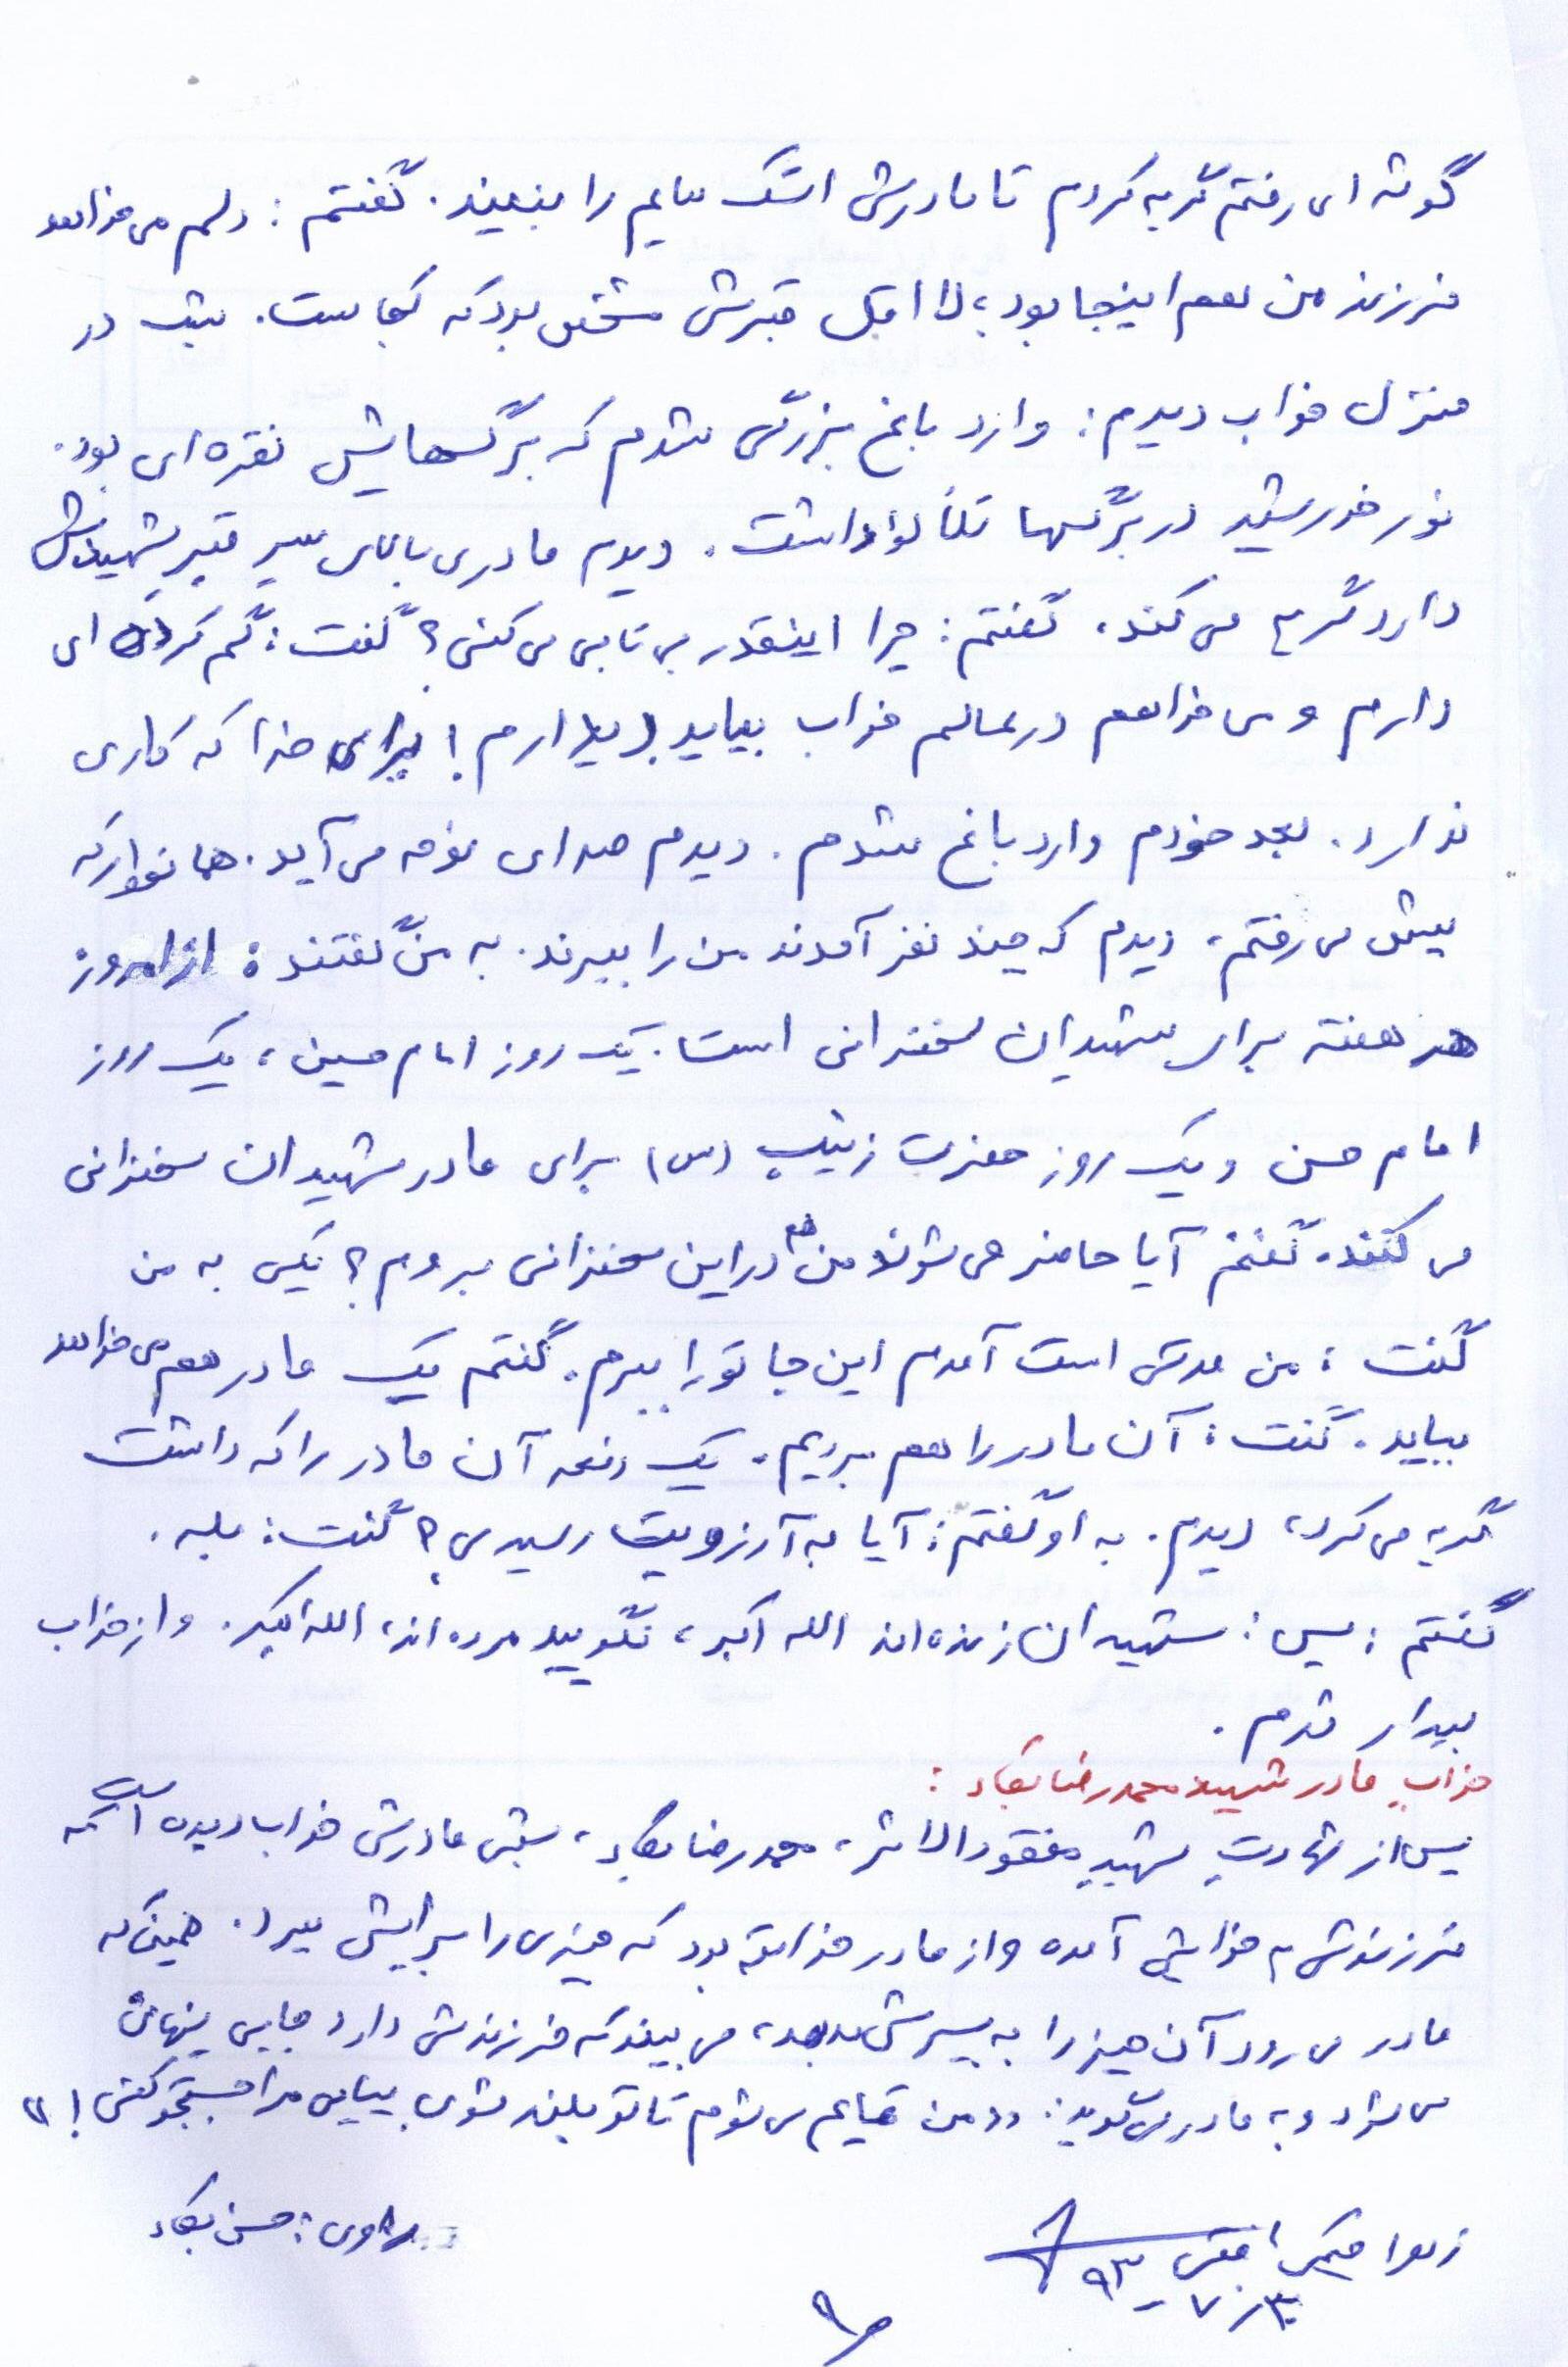 گوشه ای رفتم گریه کردم تا مادرش اشک هایم را نبیند. گفتم: دلم می خواهد
فرزند من هم اینجا بود، لا اقل قبرش مشخص بود که کجاست. شب در
منزل خواب دیدم: وارد باغ بزرگی شدم که برگهایش نقره ای بود.
نور خورشید در برگها تلألؤ داشت. دیدم مادری بالای سر قبر شهیدش
دارد گریه می کند. گفتم: چرا اینقدر بی تابی می کنی؟ گفت: گم کرده ای
دارم و می خواهم در عالم خواب بیاید دیدارم! برای خدا که کاری
ندارد. بعد خودم وارد باغ شدم. دیدم صدای نوحه می آید. همانطور که
پیش می رفتم، دیدم که چند نفر آمدند من را ببرند. به من گفتند: از امروز
هر هفته برای شهیدان سخنرانی است. یک روز امام حسین، یک روز
امام حسن و یک روز حضرت زینب (س) برای مادر شهیدان سخنرانی
می کنند. گفتم آیا حاضر می شوند من هم در این سخنرانی بروم؟ یکی به من
گفت: من مدتی است آمدم این جا تو را ببرم. گفتم یک مادر هم می خواهد
بیاید. گفت: آن مادر را هم بردیم. یک دفعه آن مادر را که داشت
گریه می کرد، دیدم. به او گفتم: آیا به آرزویت رسیدی؟ گفت: بله.
گفتم: پس: شهیدان زنده اند الله اکبر، نگویید مرده اند، الله اکبر. و از خواب
بیدار شدم.
خواب مادر شهید محمدرضا بقاء:
پس از شهادت شهید مفقودالاثر، محمدرضا بقاء، شبی مادرش خواب دیده است که
فرزندش به خوابش آمده و از مادر خواسته بود که چیزی را برایش ببرد. همین که
مادر می رود آن چیز را به پسرش بدهد، می بیند که فرزندش دارد جایی پنهان
می شود و به مادر می گوید: «من قایم می شوم تا تو بلند شوی بیایی مرا جستجو کنی!»
راوی: حسن بقاء
زهرا
۹۳-۷-۳۰
ص۹